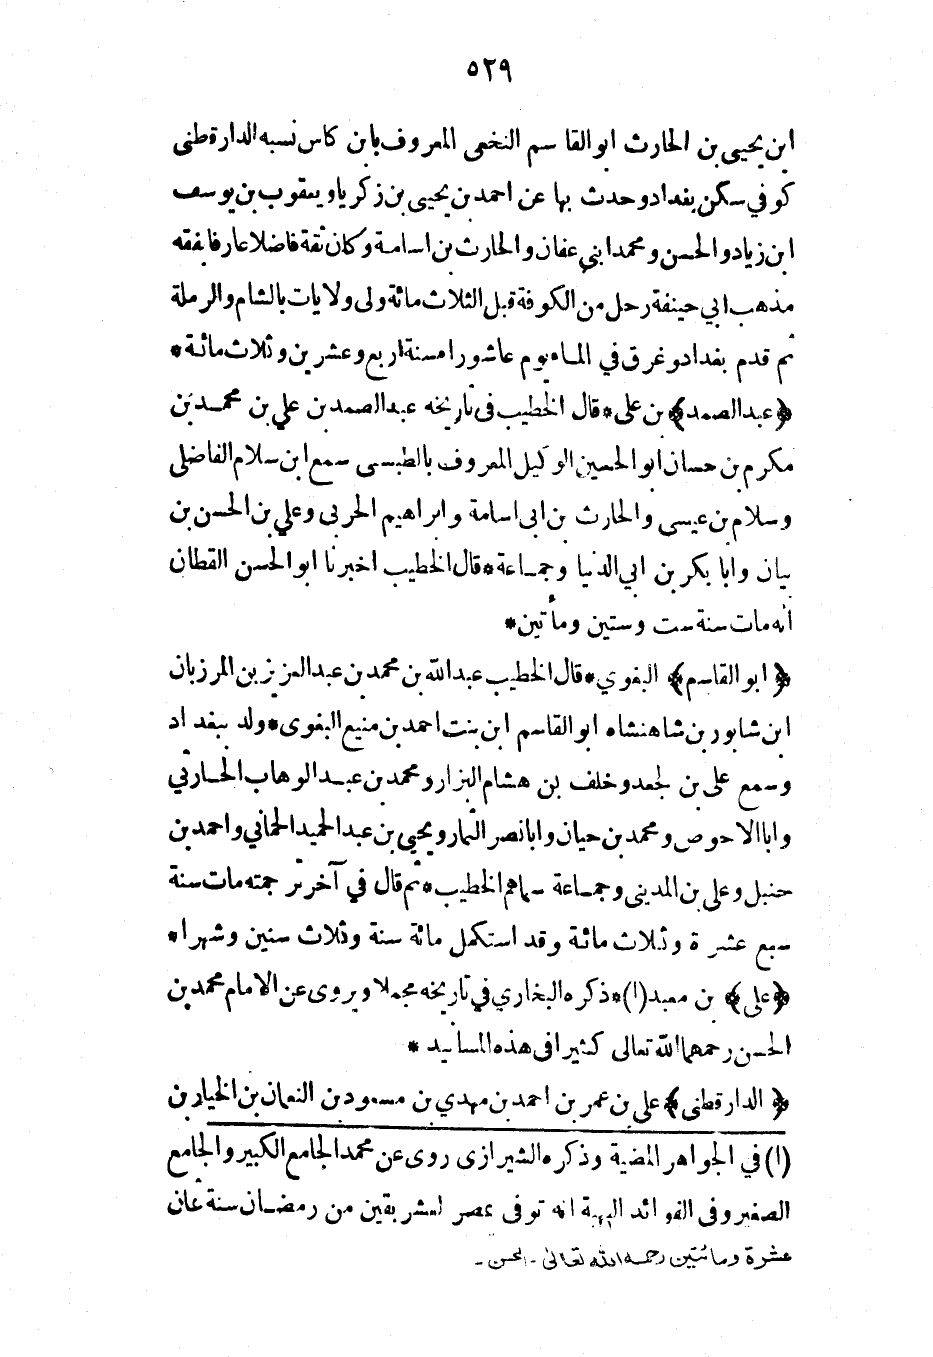 ٥٢٩
ابن يحيى بن الحارث ابو القاسم النخعى المعروف بابن كاس نسبه الدارقطنى
كوفي سكن بغداد وحدث بها عن احمد بن يحيى بن زكريا ويعقوب بن يوسف
ابن زياد والحسن ومحمد ابني عفان والحارث بن اسامة وكان ثقة فاضلا عارفا بفقه
مذهب ابي حنيفة رحل من الكوفة قبل الثلاث مائة ولى ولايات بالشام والرملة
ثم قدم بغداد وغرق في الماء يوم عاشورا سنة اربع وعشرين وثلاث مائة *
﴿عبد الصمد﴾ بن على * قال الخطيب فى تاريخه عبد الصمد بن علي بن محمد بن
مكرم بن حسان ابو الحسين الوكيل المعروف بالطبسى سمع ابن سلام الفاضلى
وسلام بن عيسى والحارث بن ابى اسامة وابراهيم الحربى وعلي بن الحسن بن
بيان وابا بكر بن ابي الدنيا وجماعة * قال الخطيب اخبرنا ابو الحسن القطان
انه مات سنة ست وستين ومأتين *
﴿ابو القاسم﴾ البغوي * قال الخطيب عبد الله بن محمد بن عبد العزيز بن المرزبان
ابن شابور بن شاهنشاه ابو القاسم ابن بنت احمد بن منيع البغوى * ولد ببغداد
وسمع على بن لجعد وخلف بن هشام البزار ومحمد بن عبد الوهاب الحارثي
وابا الاحوص ومحمد بن حيان وابا نصر التمار ويحيى بن عبد الحميد الحماني واحمد بن
حنبل وعلى بن المدينى وجماعة سماهم الخطيب * ثم قال في آخر ترجمته مات سنة
سبع عشرة وثلاث مائة وقد استكمل مائة سنة وثلاث سنين وشهرا *
﴿على﴾ بن معبد (١) * ذكره البخاري في تاريخه مجملا ويروى عن الامام محمد بن
الحسن رحمهما الله تعالى كثيرا فى هذه المسانيد *
﴿الدارقطنى﴾ علي بن عمر بن احمد بن مهدي بن مسعود بن النعمان بن الخيار بن
(١) في الجواهر المضية وذكره الشيرازى روى عن محمد الجامع الكبير والجامع
الصغير وفى الفوائد البهية انه توفى بمصر لعشر بقين من رمضان سنة ثمان
عشرة ومائتين رحمه الله تعالى - الحسن -